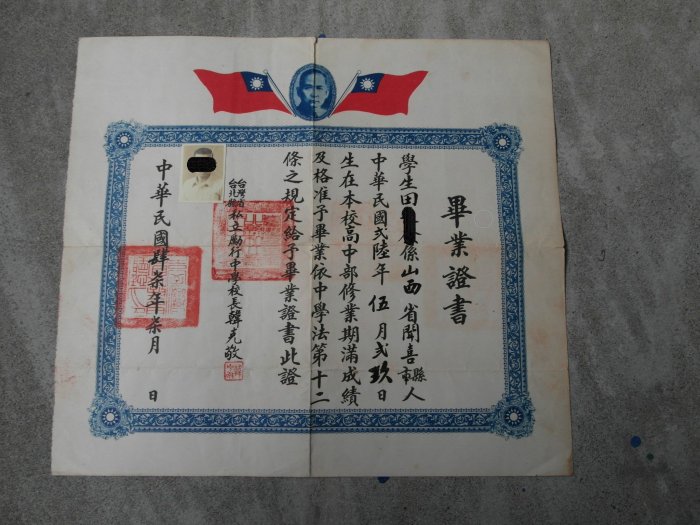 畢業證書
學生田係山西省聞喜縣市人
中華民國弍陸年伍月弍玖日
生在本校高中部修業期滿成績
及格准予畢業依中學法第十二
條之規定給予畢業證書此證
台灣省
台北縣
私立勵行中學校長韓克敬
中華民國肆柒年柒月 日